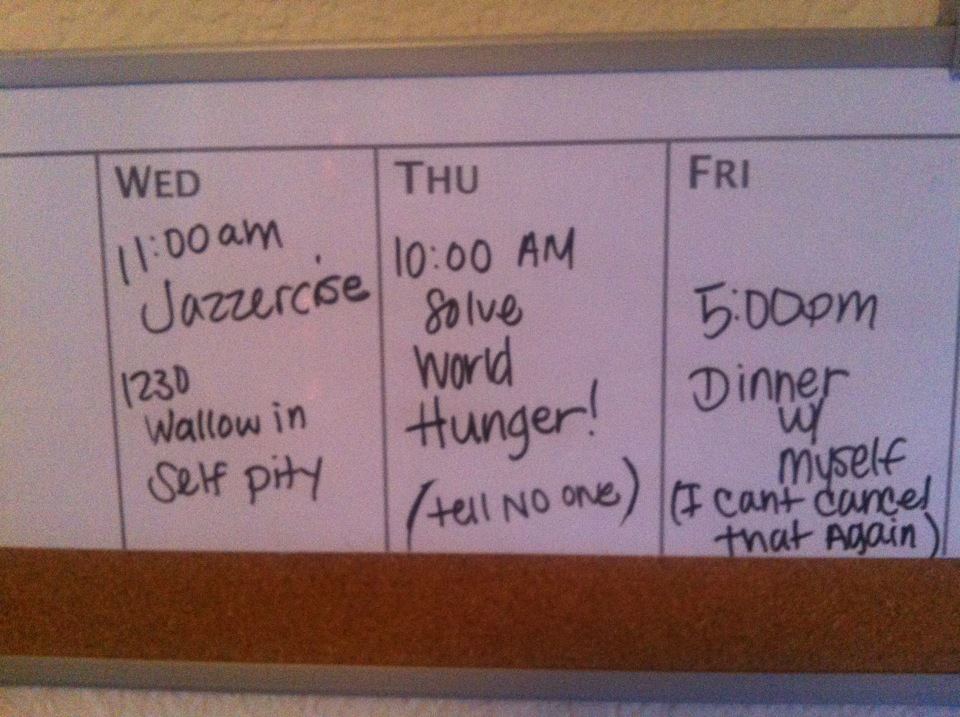 WED
11:00 am
Jazzercise
1230
Wallow in
Self pity
THU
10:00 AM
Solve
World
Hunger!
(tell NO one)
FRI
5:00pm
Dinner
w/
myself
(I cant cancel
that Again)